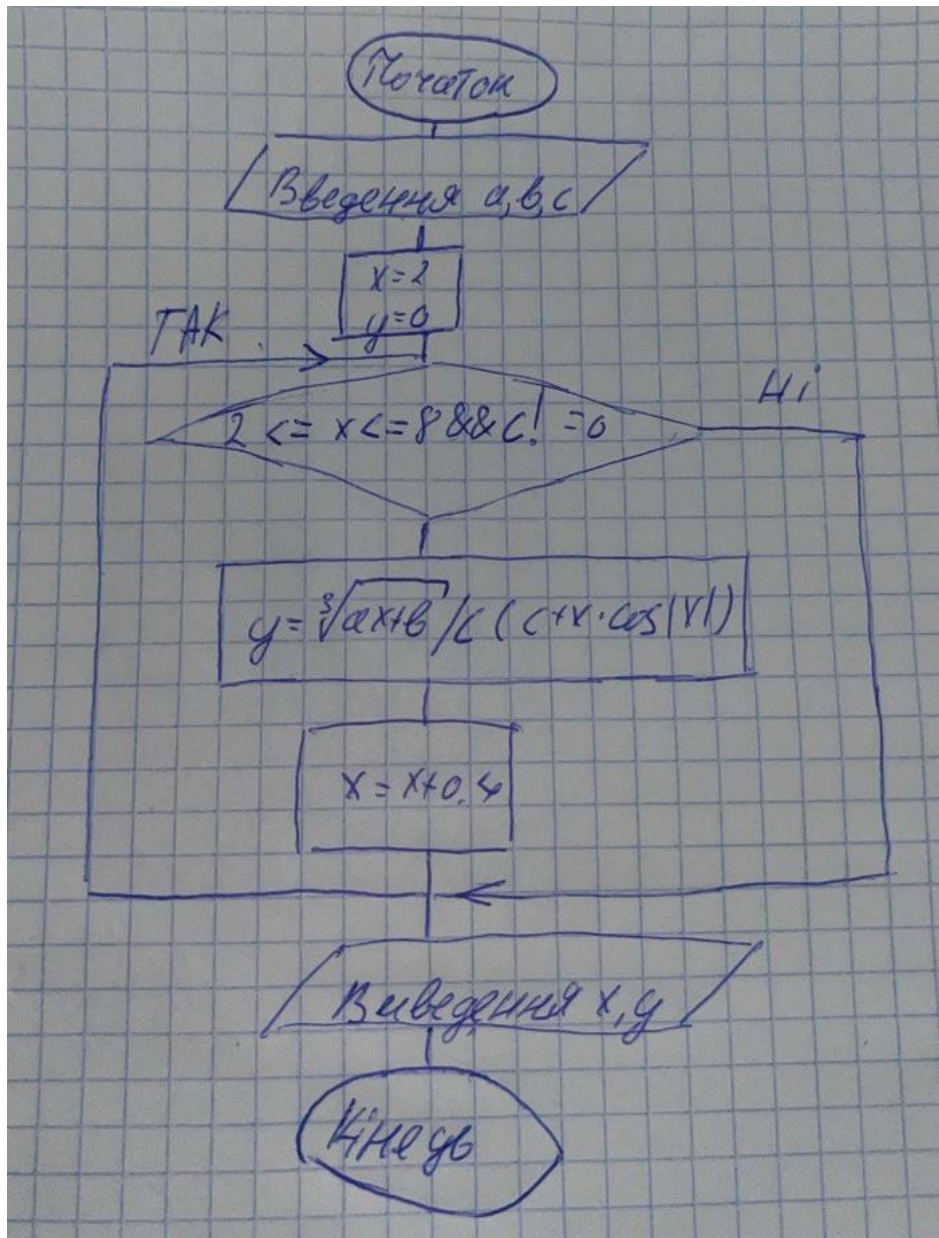 Початок
Введення a,b,c
x=2
y=0
ТАК
Ні
2 <= x <= 8 && c! = 0
y = ∛(ax+b) / c (c+x·cos|x|)
x = x+0.4
Виведення x, y
Кінець